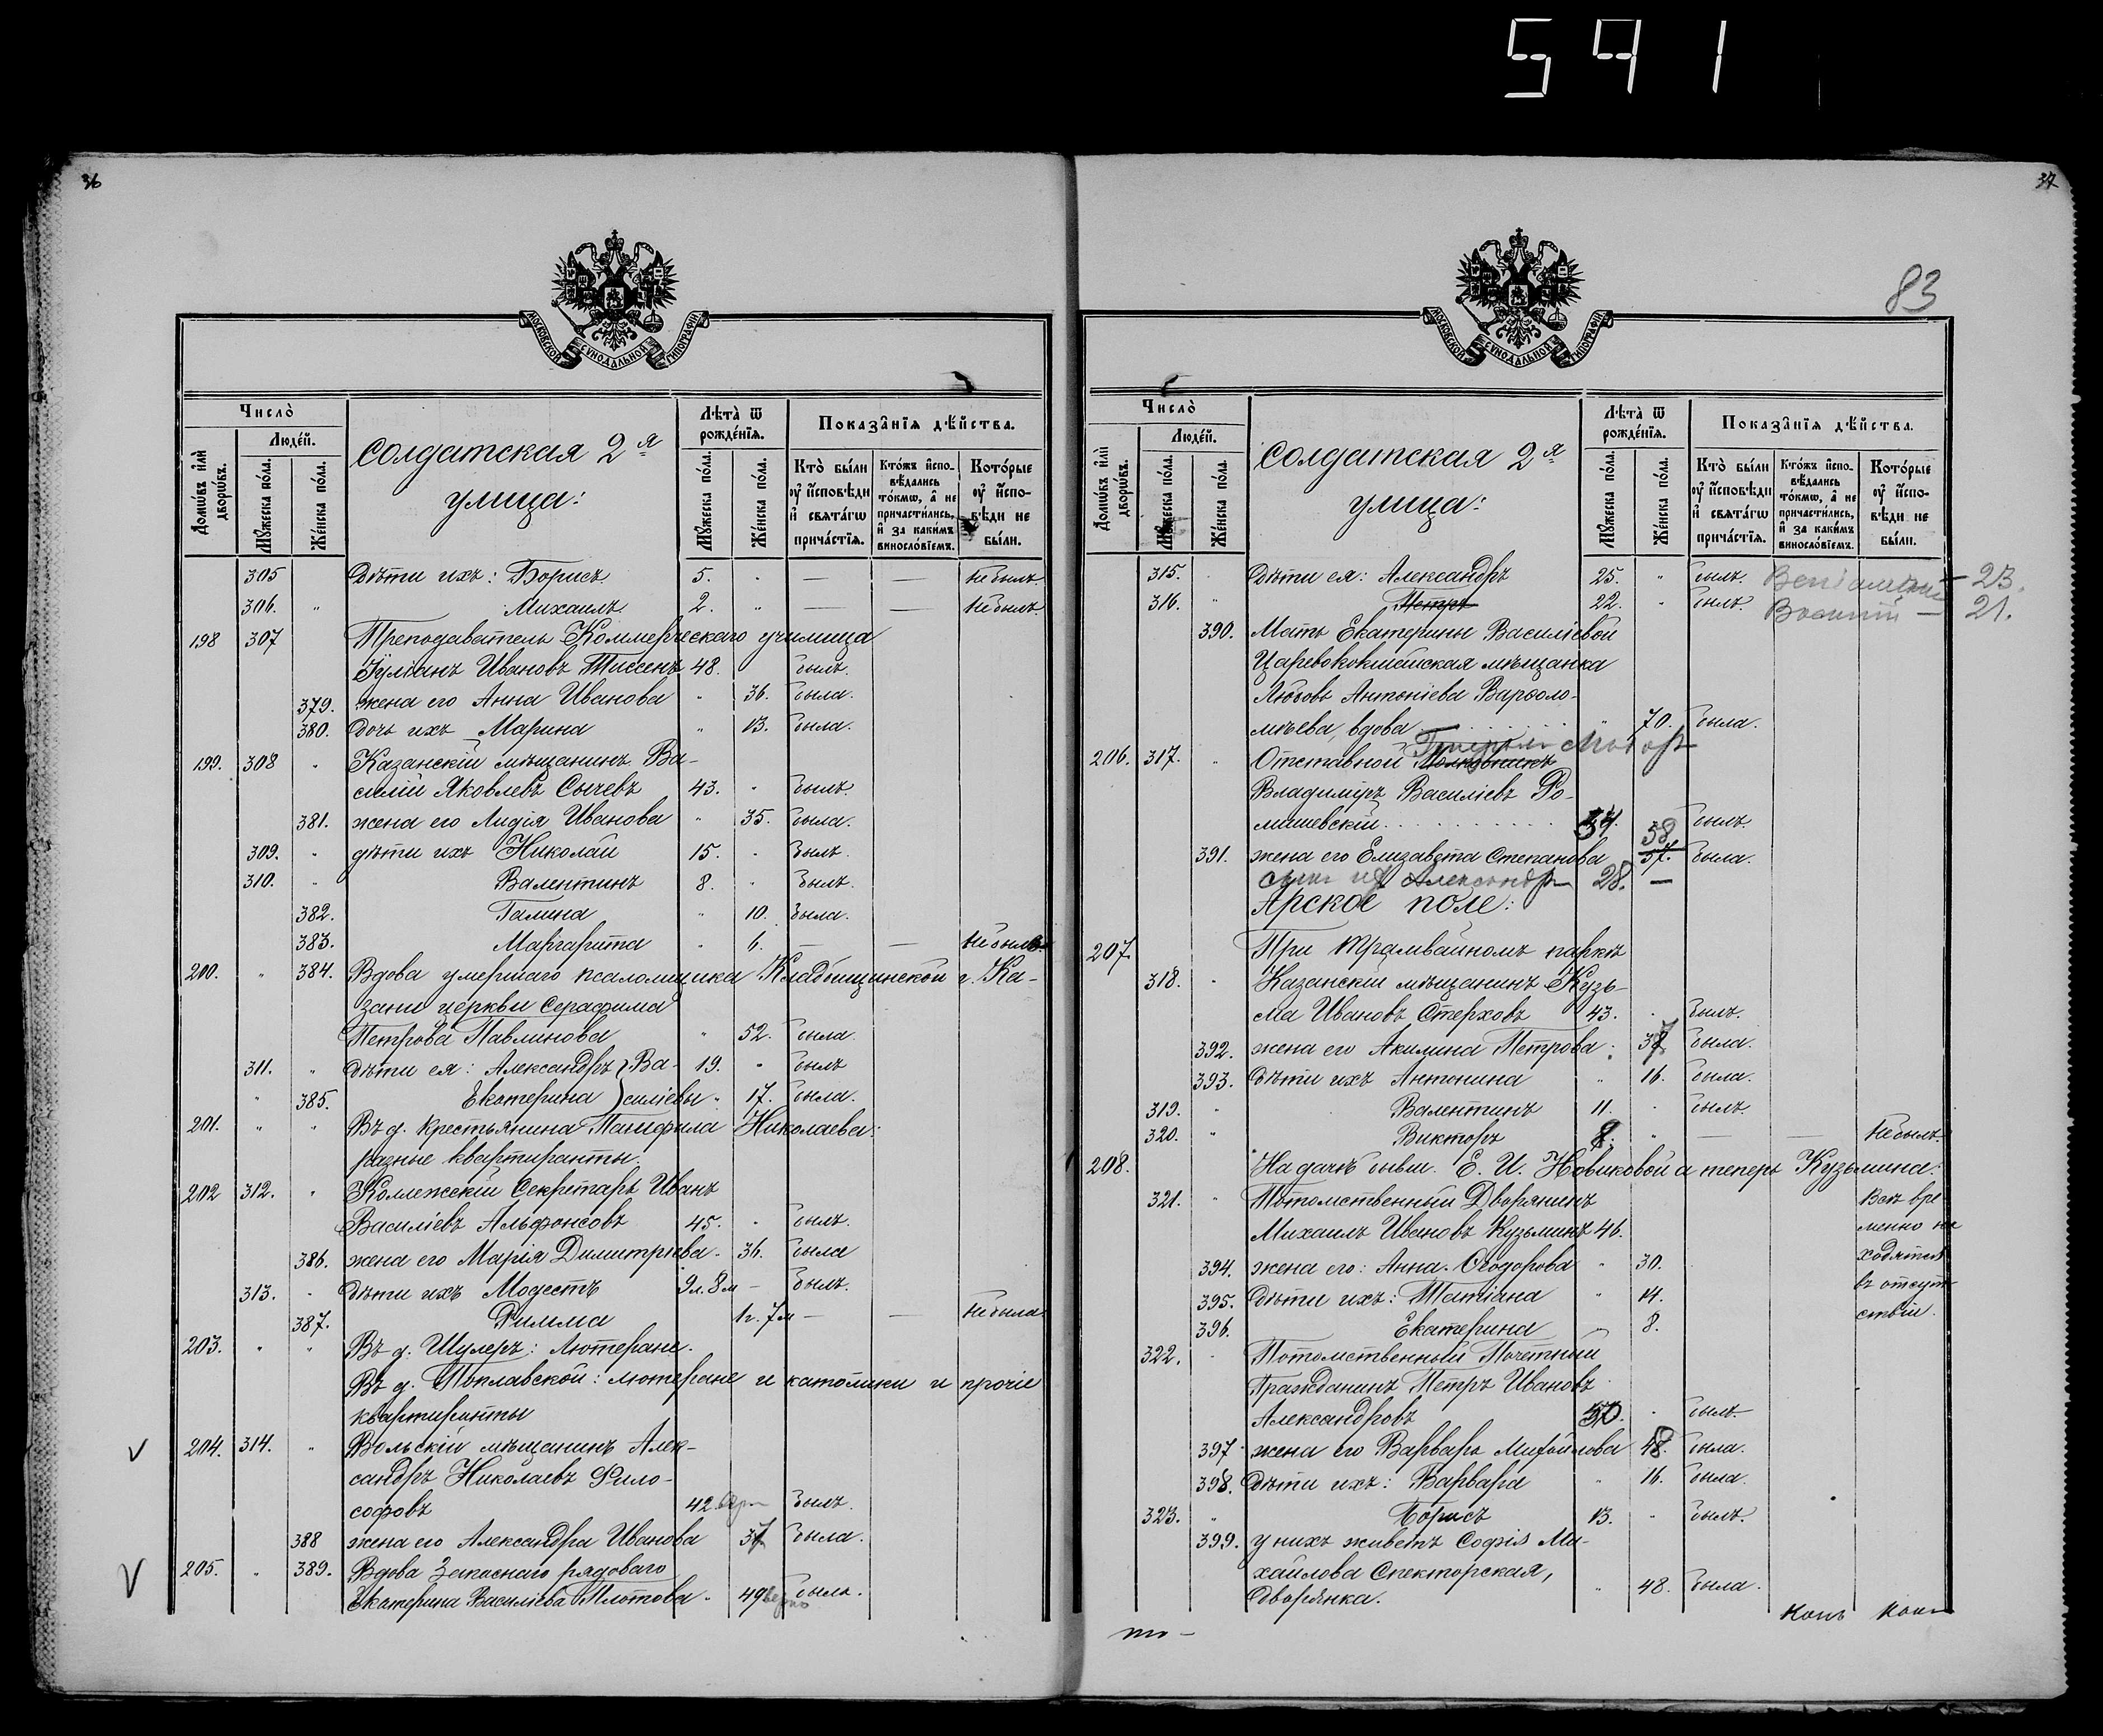 591
36
МОСКОВСКОЙ СѴНОДАЛЬНОЙ ТИПОГРАФІИ
Число̀
Людей.
Домѡвъ и҆лѝ дворѡвъ.
Мꙋжеска по́ла.
Же́нска по́ла.
Солдатская 2я
улица:
Лѣта̀ ѿ рожде́нїѧ.
Мꙋжеска по́ла.
Же́нска по́ла.
Показа̑нїѧ дѣ́йства.
Кто̀ бы́ли ᲂу҆ и҆сповѣди и҆ свѧта́гѡ прича́стїѧ.
Кто́жъ и҆сповѣдались то́кмѡ, а҆ не причасти́лись, и҆ за каки́мъ винословїемъ.
Кото́рые ᲂу҆ и҆сповѣди не бы́ли.
305 Дѣти ихъ: Борисъ 5. " — — Не былъ.
306. " Михаилъ 2. " — — Не былъ
198 307 Преподаватель Коммерческаго училища
Іуліанъ Ивановъ Тиссенъ 48. былъ.
379. жена его Анна Иванова " 36. была.
380. Дочь ихъ Марина " 13. была.
199. 308 " Казанскій мѣщанинъ Ва-
силій Яковлевъ Сычевъ 43. " былъ.
381. жена его Лидія Иванова " 35. была.
309. " дѣти ихъ Николай 15. " былъ.
310. " Валентинъ 8. " былъ.
382. Галина " 10. была.
383. Маргарита " 6. — — Не была
200. " 384. Вдова умершаго псаломщика Кладбищинской г. Ка-
зани церкви Серафима
Петрова Павлинова " 52. была
311. " Дѣти ея: Александръ } Ва- 19. " былъ
" 385. Екатерина } сильевы " 17. была.
201. " " Въ д. крестьянина Панфила Николаева:
разные квартиранты.
202 312. " Коллежскій Секретарь Иванъ
Василіевъ Альфонсовъ 45. " былъ.
386. жена его Марія Димитріева. 36. была
313. " Дѣти ихъ Модестъ 9л. 8м — былъ.
387. Римма 1г. 7м — — Не была.
203. " " Въ д. Шулеръ: Лютеране.
Въ д. Поплавской: лютеране и католики и прочіе
квартиранты
V 204. 314. " Вольскій мѣщанинъ Алек-
сандръ Николаевъ Фило-
софовъ 42. былъ.
388 жена его Александра Иванова 37 была.
V 205. " 389. Вдова Запаснаго рядоваго
Екатерина Василіева Плотова. 49 верно была.
37
83
МОСКОВСКОЙ СѴНОДАЛЬНОЙ ТИПОГРАФІИ
Число̀
Людей.
Домѡвъ и҆лѝ дворѡвъ.
Мꙋжеска по́ла.
Же́нска по́ла.
Солдатская 2я
улица:
Лѣта̀ ѿ рожде́нїѧ.
Мꙋжеска по́ла.
Же́нска по́ла.
Показа̑нїѧ дѣ́йства.
Кто̀ бы́ли ᲂу҆ и҆сповѣди и҆ свѧта́гѡ прича́стїѧ.
Кто́жъ и҆сповѣдались то́кмѡ, а҆ не причасти́лись, и҆ за каки́мъ винословїемъ.
Кото́рые ᲂу҆ и҆сповѣди не бы́ли.
315. Дѣти ея: Александръ 25. " былъ. Веніаминъ — 23.
316. " Петръ 22. " былъ. Василій — 21.
390. Мать Екатерины Василіевой
Царевококшайская мѣщанка
Любовь Антоніева Варѳоло-
мѣева, вдова " 70. была.
Генералъ Маіоръ
206. 317. " Отставной Полковникъ
Владиміръ Василіевъ Ро-
мишевскій 54. былъ.
58
391. жена его Елизавета Степанова 57. была.
сынъ ихъ Александръ 28. —
Арское поле:
207. При трамвайномъ паркѣ
318. " Казанскій мѣщанинъ Кузь-
ма Ивановъ Стерховъ 43. " былъ.
392. жена его Акилина Петрова: 37 была.
393. Дѣти ихъ Антонина " 16. была.
319. " Валентинъ 11. " былъ.
320. " Викторъ 8. " — — Не былъ
208. На дачѣ бывш. Е. И. Новиковой а теперь Кузьмина:
321. " Потомственный Дворянинъ Всѣ вре
Михаилъ Ивановъ Кузьминъ 46. менно на
394. жена его: Анна Ѳеодорова " 30. ходятся
395. Дѣти ихъ: Татіана " 14. въ отсут
396. Екатерина " 8. ствіи.
322. " Потомственный Почетный
Гражданинъ Петръ Ивановъ
Александровъ 50. " былъ
397 жена его Варвара Михайлова 48. была.
398. Дѣти ихъ: Варвара " 16. была.
323. " Борисъ 13. " былъ.
399. у нихъ живетъ Софія Ми-
хайлова Спекторская,
Дворянка. " 48. была.